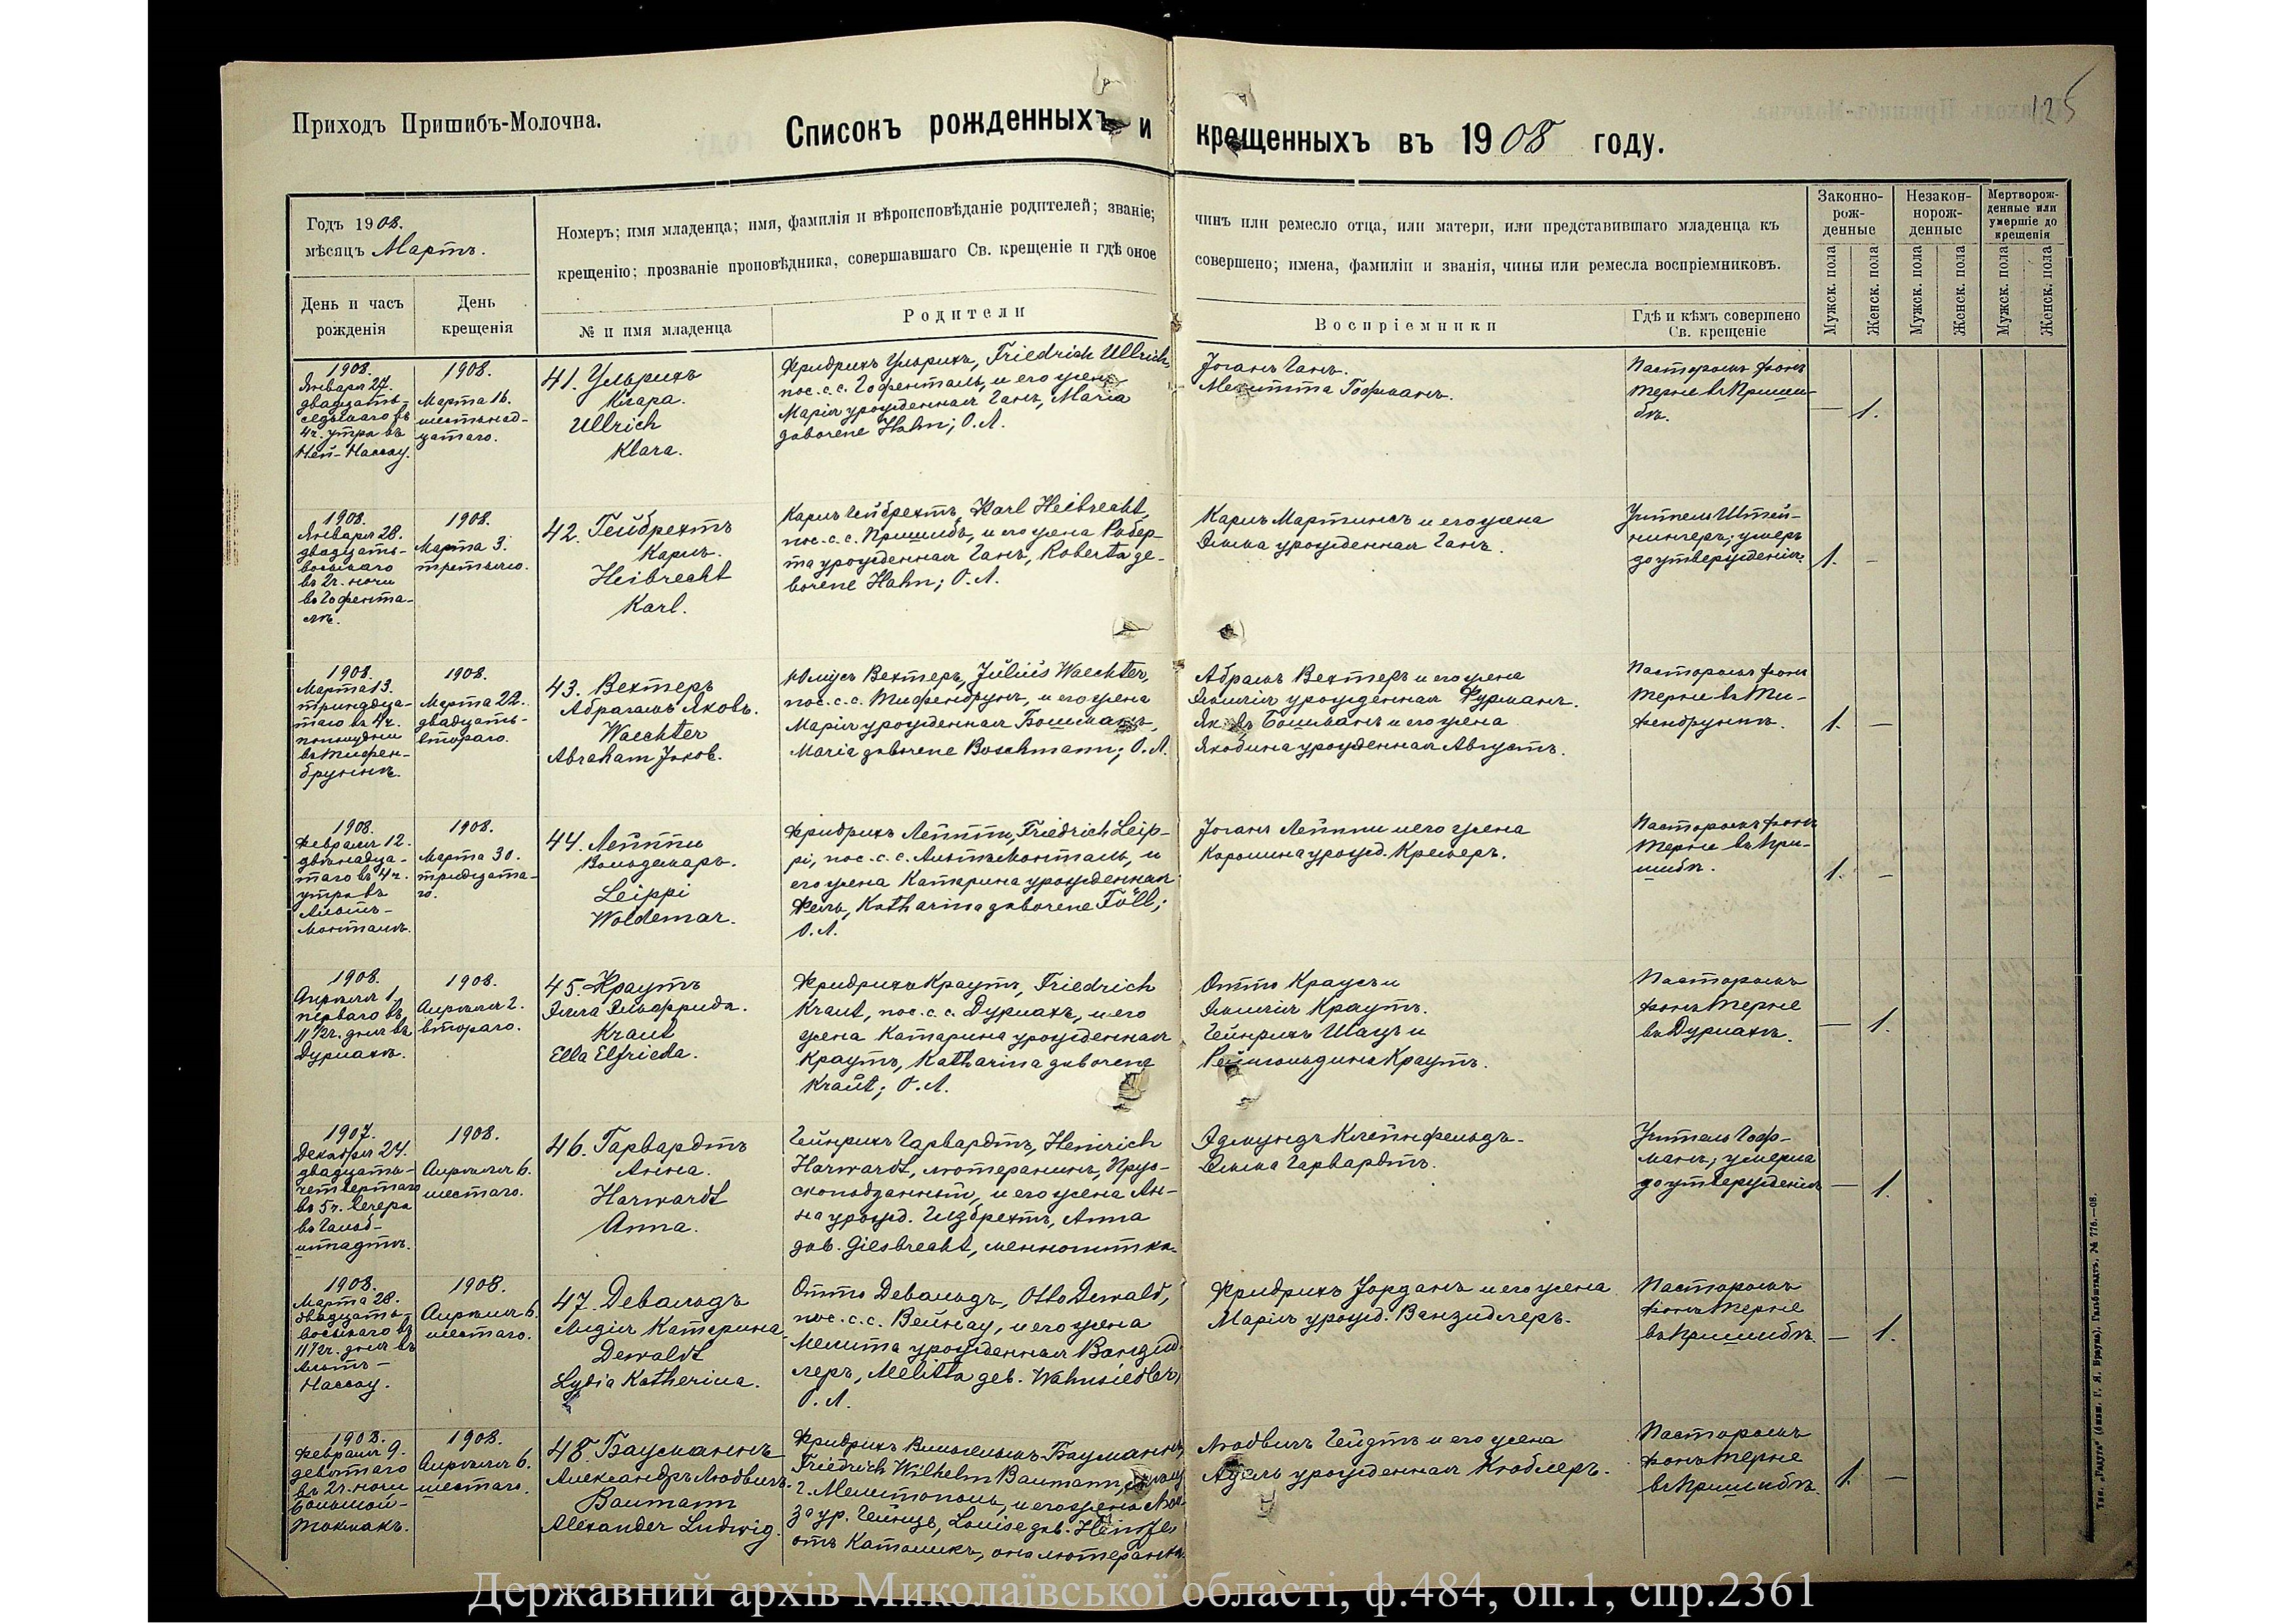 Приходъ Пришибъ-Молочна.
Списокъ рожденныхъ и крещенныхъ въ 1908 году.
125
Годъ 1908.
мѣсяцъ Мартъ.
Номеръ; имя младенца; имя, фамилія и вѣроисповѣданіе родителей; званіе; чинъ или ремесло отца, или матери, или представившаго младенца къ
крещенію; прозваніе проповѣдника, совершавшаго Св. крещеніе и гдѣ оное совершено; имена, фамиліи и званія, чины или ремесла воспріемниковъ.
Законно-
рож-
денные
Незакон-
норож-
денные
Мертворож-
денные или
умершіе до
крещенія
День и часъ
рожденія
День
крещенія
№ и имя младенца
Родители
Воспріемники
Гдѣ и кѣмъ совершено
Св. крещеніе
Мужск. пола
Женск. пола
Мужск. пола
Женск. пола
Мужск. пола
Женск. пола
1908.
Января 27.
двадцать-
седьмаго въ
4 ч. утра въ
Ней-Нассау.
1908.
Марта 16.
шестьнад-
цатаго.
41. Ульрихъ
Клара.
Ullrich
Klara.
Фридрихъ Ульрихъ, Friedrich Ullrich,
пос. с. с. Гофенталь, и его жена
Марія урожденная Ганъ, Maria
geborene Hahn; О. Л.
Јоганъ Ганъ.
Мелитта Гофманъ.
Пасторомъ фонъ
Терне въ Приши-
бѣ.
— 1.
1908.
Января 28.
двадцать-
восьмаго
въ 2 ч. ночи
въ Гофента-
лѣ.
1908.
Марта 3.
третьяго.
42. Гейбрехтъ
Карлъ.
Heibrecht
Karl.
Карлъ Гейбрехтъ, Karl Heibrecht,
пос. с. с. Пришибъ, и его жена Робер-
та урожденная Ганъ, Roberta ge-
borene Hahn; О. Л.
Карлъ Мартинсъ и его жена
Эмма урожденная Ганъ.
Учитель Штей-
нингеръ; умеръ
до утвержденія.
1. —
1908.
Марта 13.
тринадца-
таго въ 4 ч.
пополудни
въ Тифен-
бруннѣ.
1908.
Марта 22.
двадцать-
втораго.
43. Вехтеръ
Абрагамъ Яковъ.
Waechter
Abraham Jakob.
Юліусъ Вехтеръ, Julius Waechter,
пос. с. с. Тифенбрунъ, и его жена
Марія урожденная Бошманъ,
Maria geborene Boschmann; О. Л.
Абрамъ Вехтеръ и его жена
Эмилія урожденная Фурманъ.
Яковъ Бошманъ и его жена
Якобина урожденная Августъ.
Пасторомъ фонъ
Терне въ Ти-
фенбруннѣ.
1. —
1908.
Февраля 12.
двѣнадца-
таго въ 4 ч.
утра въ
Альтъ-
Монталѣ.
1908.
Марта 30.
тридцата-
го.
44. Лейппи
Вольдемаръ.
Leippi
Woldemar.
Фридрихъ Лейппи, Friedrich Leip-
pi, пос. с. с. Альтъ Монталь, и
его жена Катерина урожденная
Фель, Katharina geborene Föll;
О. Л.
Јоганъ Лейппи и его жена
Каролина урожд. Кремеръ.
Пасторомъ фонъ
Терне въ При-
шибѣ.
1. —
1908.
Апрѣля 1.
перваго въ
11 1/2 ч. дня въ
Дурлахѣ.
1908.
Апрѣля 2.
втораго.
45. Краутъ
Элла Эльфрида.
Kraut
Ella Elfrieda.
Фридрихъ Краутъ, Friedrich
Kraut, пос. с. с. Дурлахъ, и его
жена Катарина урожденная
Краутъ, Katharina geborene
Kraut; О. Л.
Отто Краусъ и
Эмилія Краутъ.
Гейнрихъ Шацъ и
Рейнгольдина Краутъ.
Пасторомъ
фонъ Терне
въ Дурлахѣ.
— 1.
1907.
Декабря 24.
двадцать-
четвертаго
въ 5 ч. вечера
въ Гальб-
штадтѣ.
1908.
Апрѣля 6.
шестаго.
46. Гарвардтъ
Анна.
Harwardt
Anna.
Гейнрихъ Гарвардтъ, Heinrich
Harwardt, лютеранинъ, Прус-
скоподданный, и его жена Ан-
на урожд. Гизбрехтъ, Anna
geb. Giesbrecht, меннонитка.
Эдмундъ Клейнфельдъ.
Эмма Гарвардтъ.
Учитель Гоф-
манъ; умерла
до утвержденія
— 1.
1908.
Марта 28.
двадцать-
восьмаго въ
11 1/2 ч. дня въ
Альтъ-
Нассау.
1908.
Апрѣля 6.
шестаго.
47. Девальдъ
Лидія Катерина.
Dewaldt
Lydia Katherina.
Отто Девальдъ, Otto Dewald,
пос. с. с. Вейнау, и его жена
Мелита урожденная Ванзид-
леръ, Melitta geb. Wahnsiedler,
О. Л.
Фридрихъ Јорданъ и его жена
Марія урожд. Ванзидлеръ.
Пасторомъ
фонъ Терне
въ Пришибѣ.
— 1.
1908.
Февраля 9.
девятаго
въ 2 ч. ночи
Большой-
Токмакъ.
1908.
Апрѣля 6.
шестаго.
48. Бауманнъ
Александръ Людвигъ.
Baumann
Alexander Ludwig.
Фридрихъ Вильгельмъ Бауманнъ,
Friedrich Wilhelm Baumann,
г. Мелитополь, и его жена Луи-
за ур. Гейнце, Louise geb. Heinze,
онъ Католикъ, она лютеранка.
Людвигъ Гейдтъ и его жена
Адель урожденная Кюблеръ.
Пасторомъ
фонъ Терне
въ Пришибѣ.
1. —
Тип. „Радуга" (бывш. Г. Я. Брауна), Гальбштадтъ, № 776.—08.
Державний архів Миколаївської області, ф.484, оп.1, спр.2361